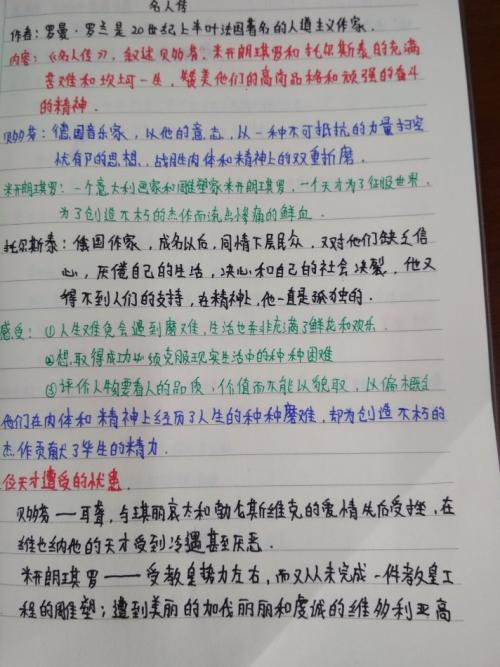 名人传
作者：罗曼·罗兰是20世纪上半叶法国著名的人道主义作家．
内容：《名人传》，叙述贝多芬、米开朗琪罗和托尔斯泰的充满
苦难和坎坷一生，赞美他们的高尚品格和顽强的奋斗
的精神．
贝多芬：德国音乐家，以他的意志，以一种不可抵抗的力量扫空
忧郁的思想、战胜肉体和精神上的双重折磨．
米开朗琪罗：一个意大利画家和雕塑家米开朗琪罗，一个天才为了征服世界．
为了创造不朽的杰作而流点惨痛的鲜血．
托尔斯泰：俄国作家，成名以后，同情下层民众，又对他们缺乏信
心，厌倦自己的生活，决心和自己的社会决裂，他又
得不到人们的支持，在精神上，他一直是孤独的．
感受：①人生难免会遇到磨难，生活也并非充满了鲜花和欢乐．
②想取得成功必须克服现实生活中的种种困难
③评价人物要看人的品质、价值而不能以貌取，以偏概全
他们在肉体和精神上经历了人生的种种磨难，却为创造不朽的
杰作贡献了毕生的精力．
天才遭受的忧患．
贝多芬——耳聋，与琪丽哀太和勃伦斯维克的爱情先后受挫，在
维也纳他的天才受到冷遇甚至厌恶．
米开朗琪罗——受教皇势力左右，而又从未完成一件教皇工
程的雕塑；遭到美丽的加伐丽丽和虔诚的维多利亚高